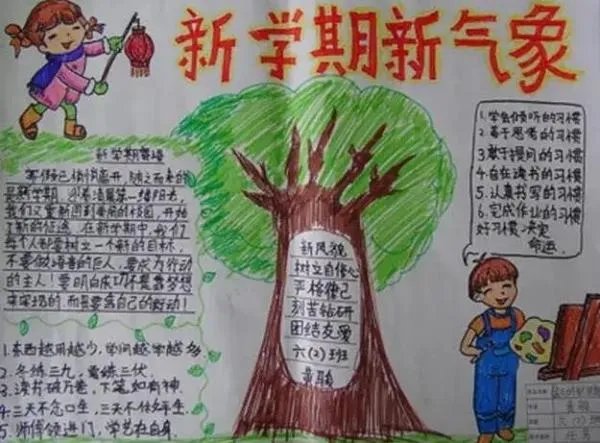 新学期新气象
新学期寄语
寒假已悄悄离开,随之而来的
是新学期,沿着清晨第一缕阳光,
我们又重新回到美丽的校园,开始
了新的征途。在新学期中,我们
每个人都要树立一个新的目标,
不要做语言的巨人,要成为行动
的主人!要明白成功不是靠梦想
来实现的,而是要靠自己的行动!
1.东西越用越少,学问越学越多
2.冬练三九,夏练三伏。
3.读书破万卷,下笔如有神。
4.三天不念口生,三天不做手生。
5.师傅领进门,学艺在自身。
新风貌
树立自信心
严格律己
刻苦钻研
团结友爱
六(2)班
1.学会倾听的习惯
2.善于思考的习惯
3.敢于提问的习惯
4.自主读书的习惯
5.认真书写的习惯
6.完成作业的习惯
好习惯,决定
命运